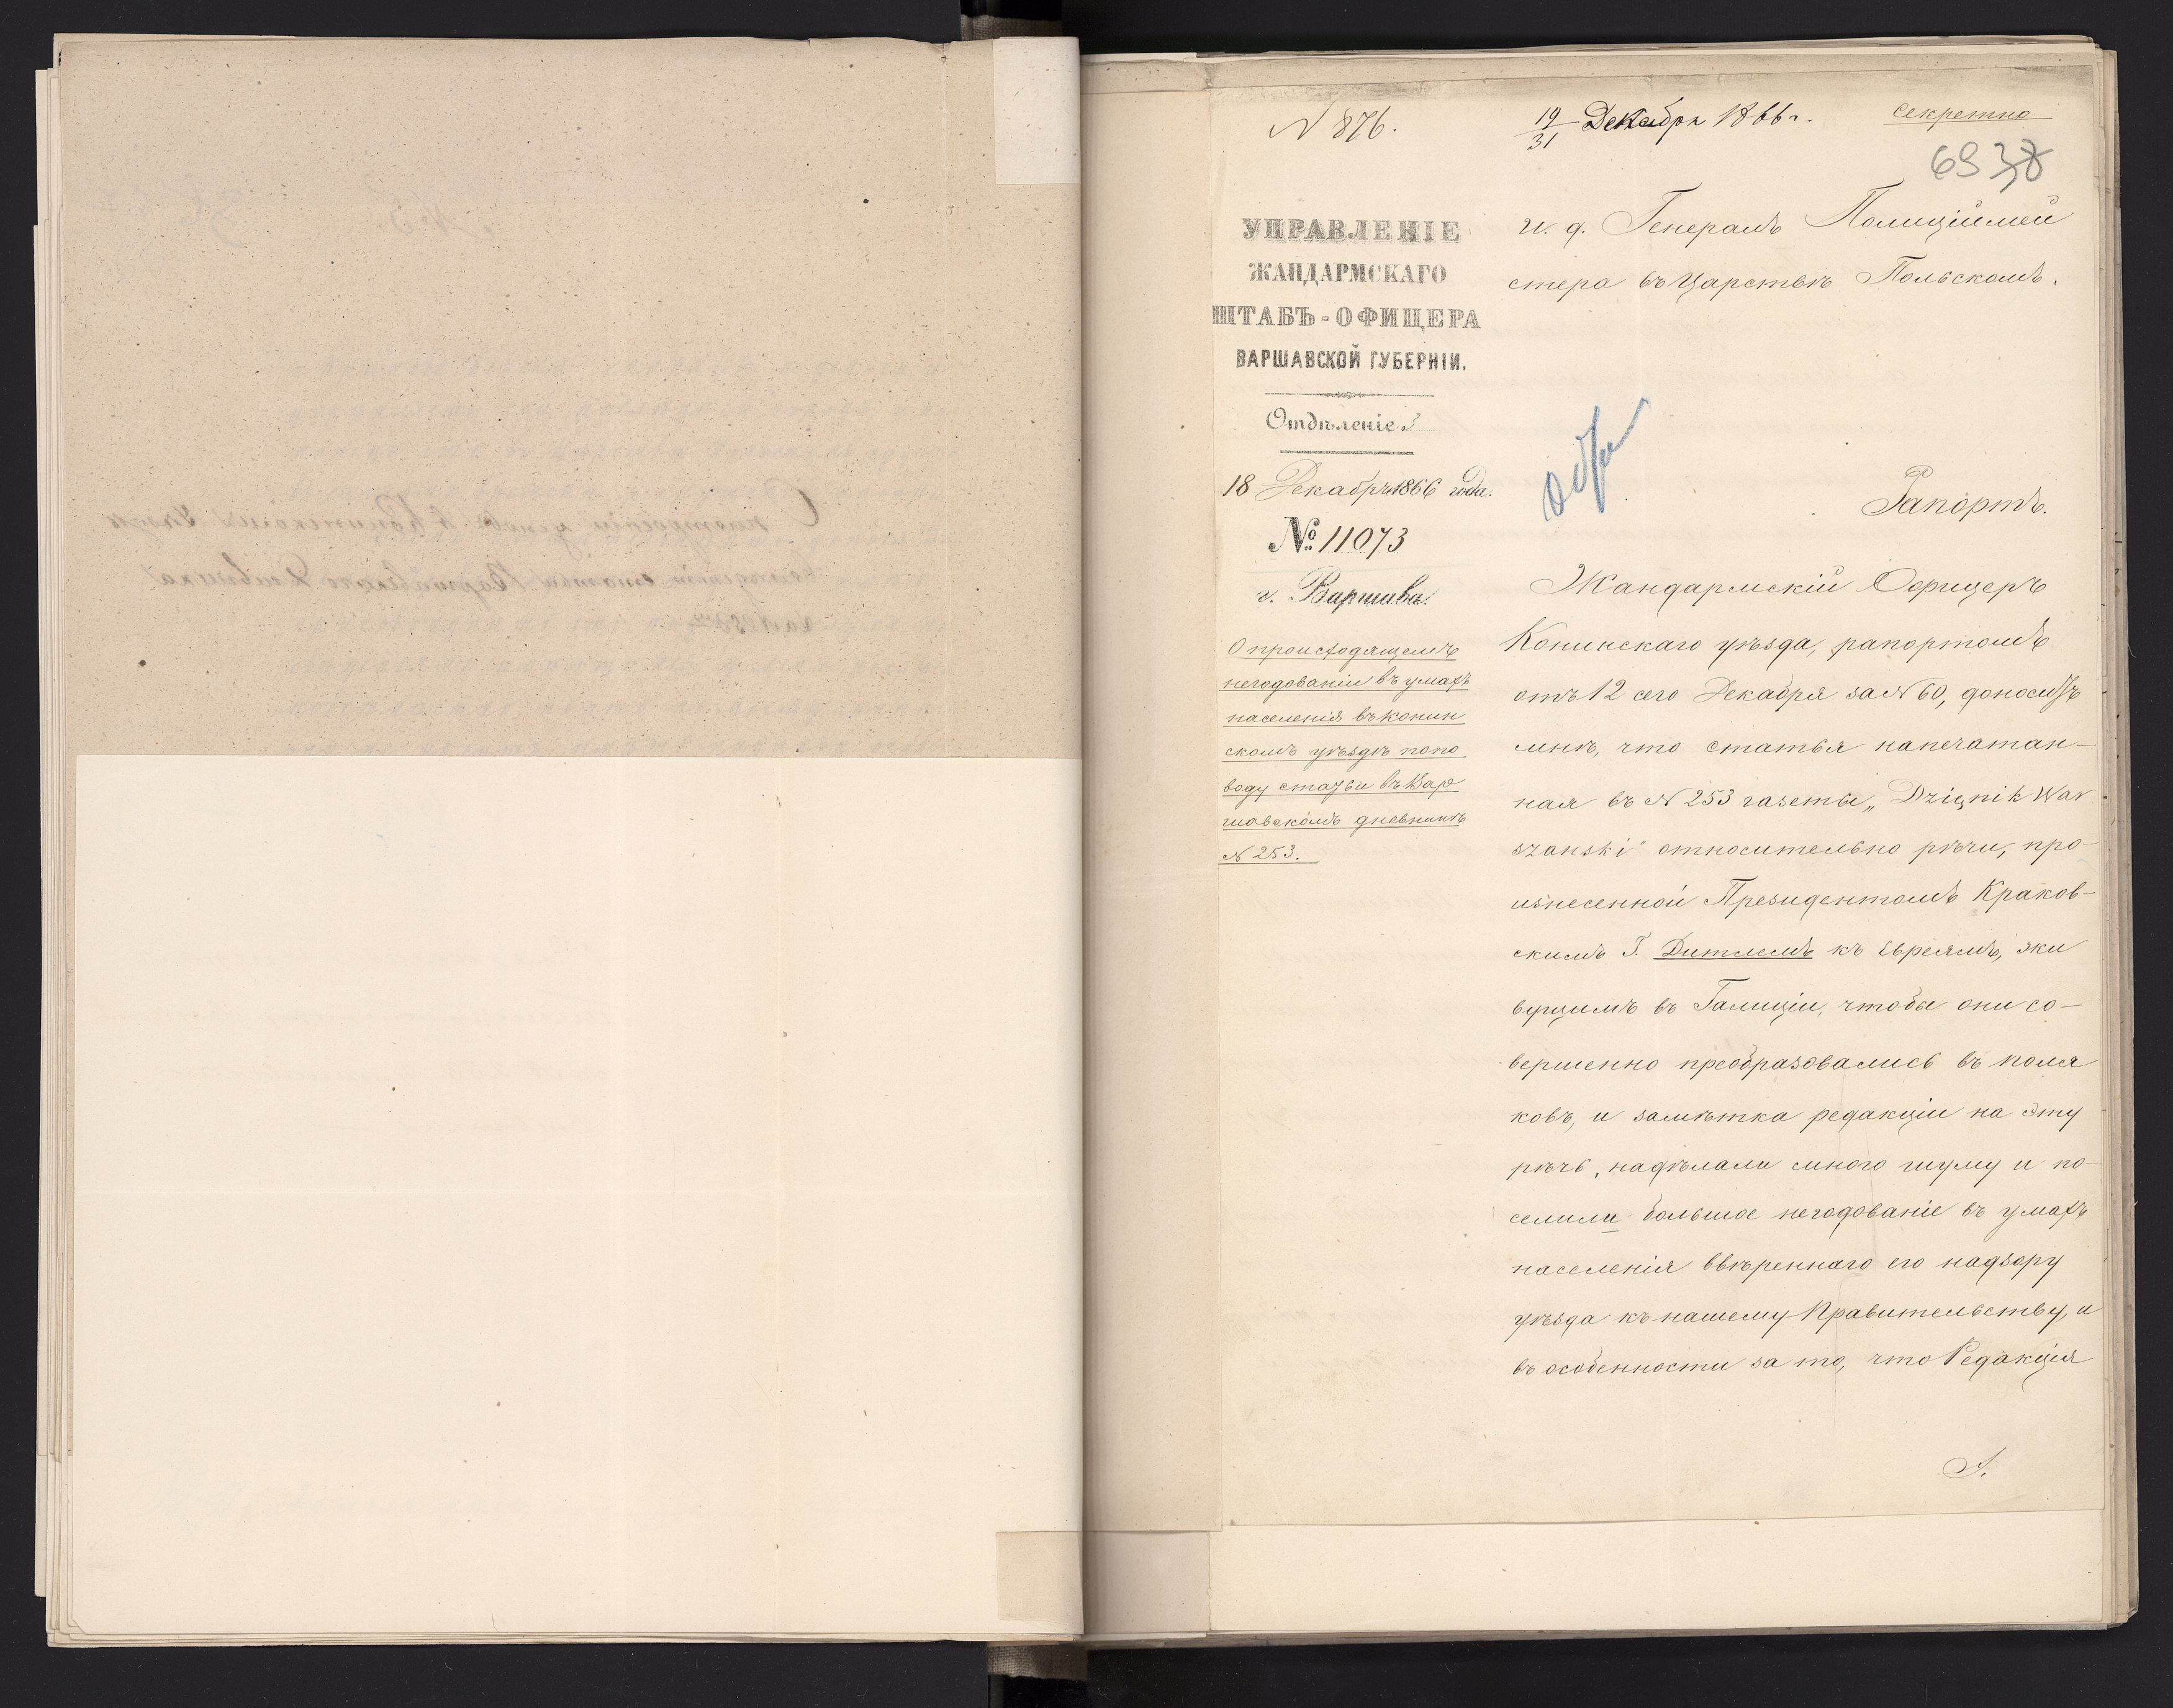 N 876.
19/31 Декабря 1866 г.
Секретно
69
УПРАВЛЕНІЕ
ЖАНДАРМСКАГО
ШТАБЪ-ОФИЦЕРА
ВАРШАВСКОЙ ГУБЕРНІИ.
Отдѣленіе 3
18 Декабря 1866 года.
№ 11073
г. Варшава.
О происходящемъ
негодованіи въ умахъ
населенія въ Конин
скомъ уѣздѣ по по
воду статьи въ Вар
шавскомъ дневникѣ
N 253.
и. д. Генералъ Полиціймей
стера въ Царствѣ Польскомъ.
Рапортъ.
Жандармскій Офицеръ
Конинскаго уѣзда, рапортомъ
отъ 12 сего Декабря за N 60, доноситъ
мнѣ, что статья напечатан-
ная въ N 253 газеты „Dzięnik War
szanski" относительно рѣчи, про-
изнесенной Президентомъ Краков-
скимъ Г. Дитлемъ къ Евреямъ, жи
вущимъ въ Галиціи, чтобы они со-
вершенно преобразовались въ поля
ковъ, и замѣтка редакціи на эту
рѣчь, надѣлали много шуму и по-
селили большое негодованіе въ умахъ
населенія ввѣреннаго его надзору
уѣзда къ нашему Правительству, и
въ особенности за то, что Редакція